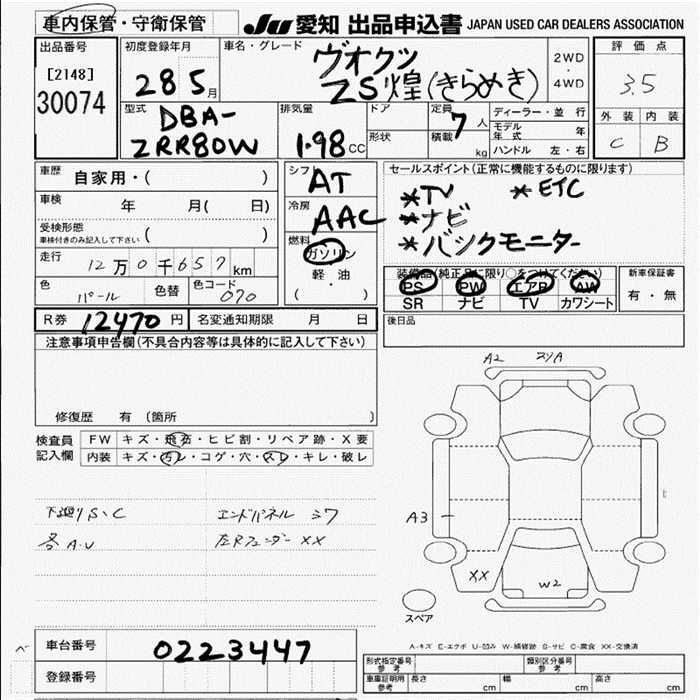 車内保管・守衛保管
JU 愛知 出品申込書 JAPAN USED CAR DEALERS ASSOCIATION
出品番号
[2148]
30074
初度登録年月
28 5月
車名・グレード
ヴオクシ
ZS煌(きらめき)
2WD
・
4WD
評価点
3.5
外装 内装
C B
型式
DBA-
ZRR80W
排気量
1.98 CC
ドア
形状
定員 7 人
積載 kg
ディーラー・並行
モデル年式 年
ハンドル 左・右
車歴 自家用・( )
車検 年 月( 日)
受検形態
車検付きのみ記入して下さい ( )
走行 12万0千657km
色 パール 色替 色コード 070
シフト AT
冷房 AAC
燃料
ガソリン
軽・油
( )
セールスポイント(正常に機能するものに限ります)
*TV *ETC
*ナビ
*バックモニター
装備品(純正品に限り○をつけてください)
PS PW エアB AW
SR ナビ TV カワシート
新車保証書
有・無
後日品
R券 12470 円 名変通知期限 月 日
注意事項申告欄(不具合内容等は具体的に記入して下さい)
修復歴 有 〔箇所 〕
検査員記入欄
FW キズ・飛石・ヒビ割・リペア跡・X要
内装 キズ・汚レ・コゲ・穴・スレ・キレ・破レ
下廻りS、C エンドパネル シワ
各A.U 左Rフェンダー XX
A2
A3
XX
W2
スペア
A-キズ E-エクボ U-凹み W-補修跡 S-サビ C-腐食 XX-交換済
車台番号 0223447
登録番号
形式指定番号 参考 類別区分番号 参考
車庫証明用 参考 長さ cm 幅 cm 高さ cm